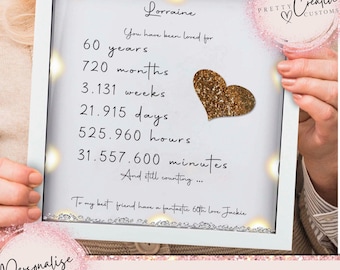 Lorraine
PRETTY Creative
CUSTOMS
You have been loved for
60 years
720 months
3.131 weeks
21.915 days
525.960 hours
31.557.600 minutes
And still counting ...
To my best friend have a fantastic 60th love Jackie
Personalise